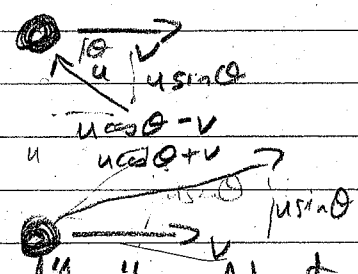 θ v
u u sinθ
u cosθ - v
u u cosθ + v
u sinθ u sinθ
v